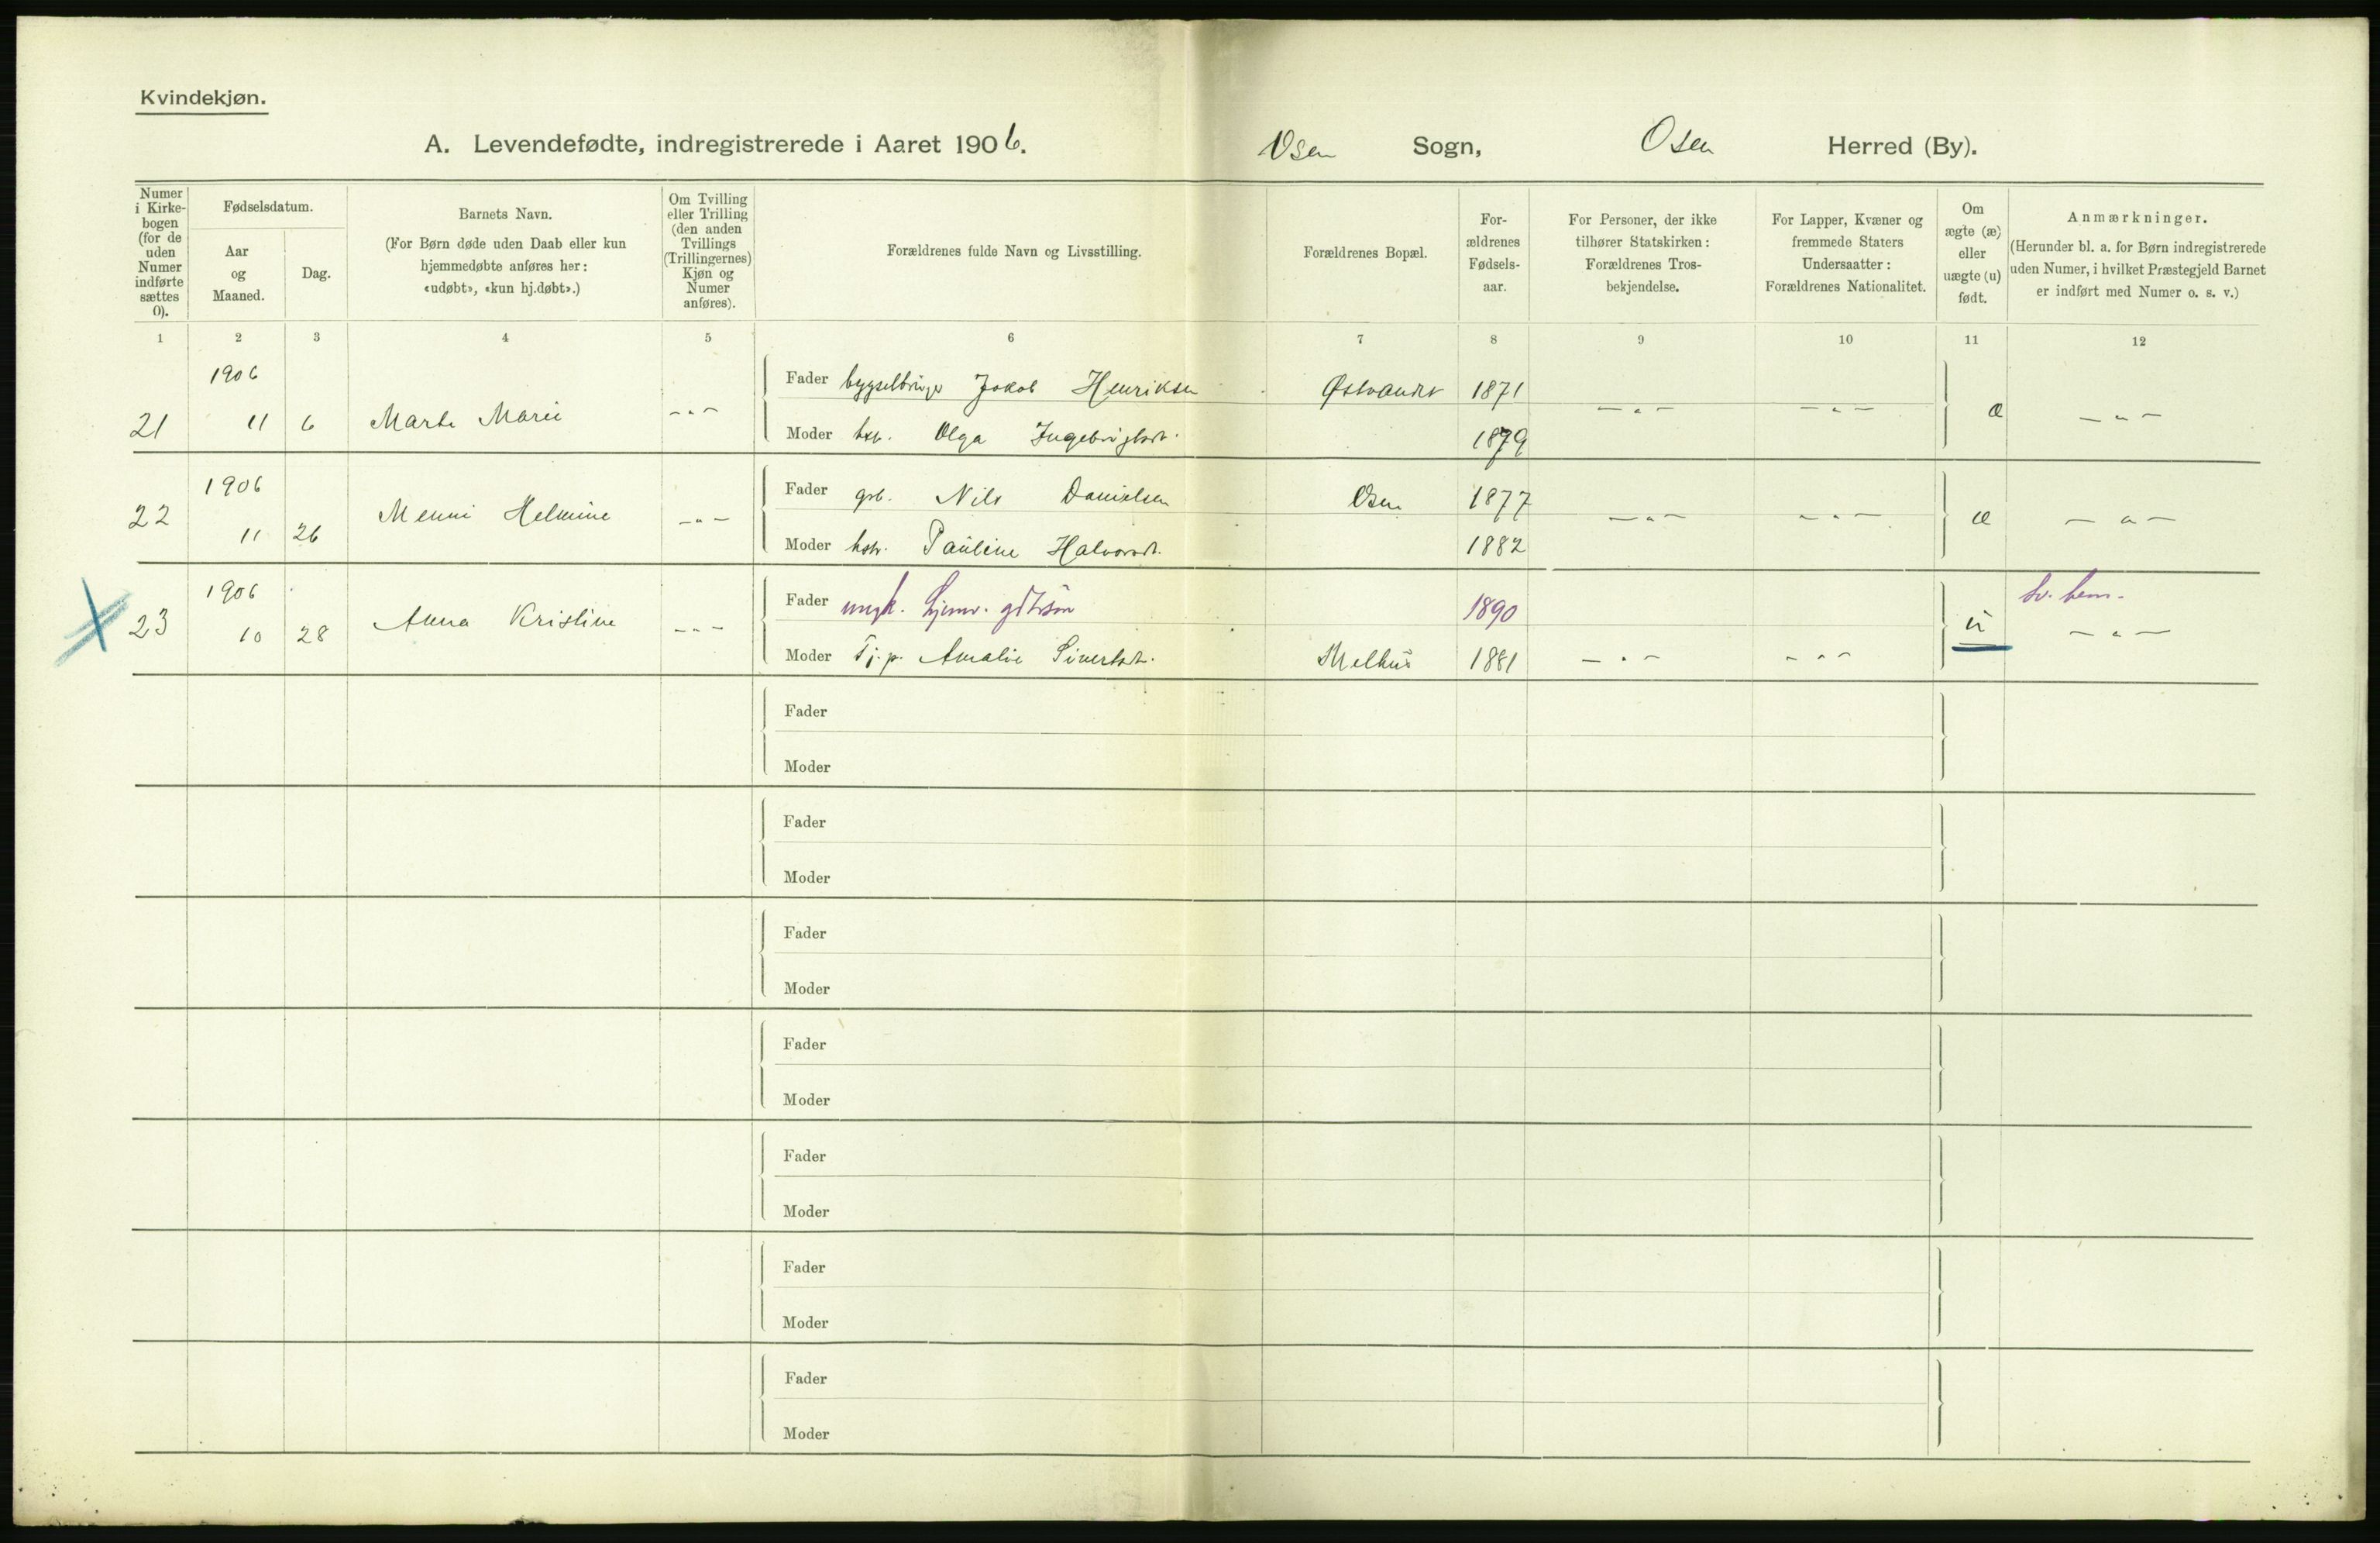 Kvindekjøn.
A. Levendefødte, indregistrerede i Aaret 1906.
Osen Sogn, Osen Herred (By).
Numer i Kirkebogen (for de uden Numer indførte sættes 0).
Fødselsdatum.
Aar og Maaned.
Dag.
Barnets Navn.
(For Børn døde uden Daab eller kun hjemmedøbte anføres her: «udøbt», «kun hj.døbt».)
Om Tvilling eller Trilling (den anden Tvillings (Trillingernes) Kjøn og Numer anføres).
Forældrenes fulde Navn og Livsstilling.
Forældrenes Bopæl.
Forældrenes Fødselsaar.
For Personer, der ikke tilhører Statskirken: Forældrenes Trosbekjendelse.
For Lapper, Kvæner og fremmede Staters Undersaatter: Forældrenes Nationalitet.
Om ægte (æ) eller uægte (u) født.
Anmærkninger.
(Herunder bl. a. for Børn indregistrerede uden Numer, i hvilket Præstegjeld Barnet er indført med Numer o. s. v.)
1 2 3 4 5 6 7 8 9 10 11 12
1906
Fader Jakob Henriksen 1871
21 11 6 Marte Marie -"- -"- -"- æ -"-
Moder Olga 1879
1906
Fader grb. Nils Danielsen Osen 1877
22 11 26 Menni Helmine -"- -"- -"- æ -"-
Moder hstr. Pauline Halvorsdt. 1882
1906
Fader ungk. gdbrsøn 1890
23 10 28 Anna Kristine -"- u -"-
Moder Tj.p. Amalie Sivertsdt. Melhus 1881 -"- -"-
Fader
Moder
Fader
Moder
Fader
Moder
Fader
Moder
Fader
Moder
Fader
Moder
Fader
Moder